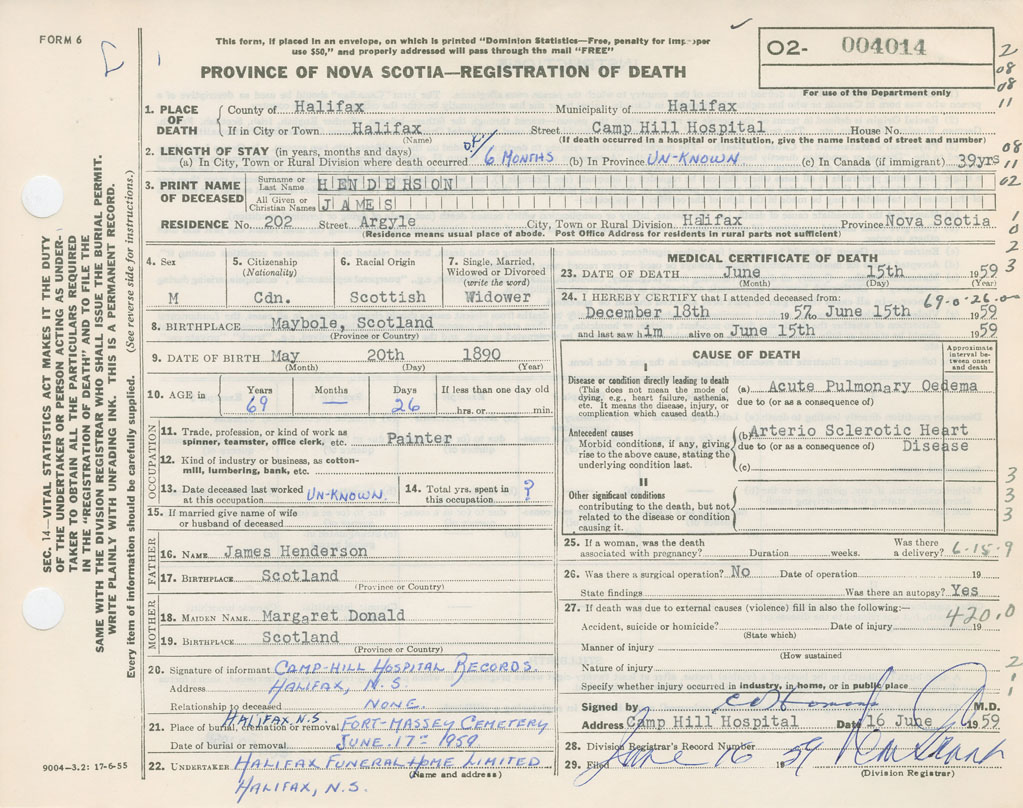 FORM 6
This form, if placed in an envelope, on which is printed "Dominion Statistics—Free, penalty for improper
use $50," and properly addressed will pass through the mail "FREE"
PROVINCE OF NOVA SCOTIA—REGISTRATION OF DEATH
02- 004014
For use of the Department only
2
08
08
11
08
11
02
1
0
2
3
SEC. 14—VITAL STATISTICS ACT MAKES IT THE DUTY
OF THE UNDERTAKER OR PERSON ACTING AS UNDER-
TAKER TO OBTAIN ALL THE PARTICULARS REQUIRED
IN THE "REGISTRATION OF DEATH" AND TO FILE THE
SAME WITH THE DIVISION REGISTRAR WHO SHALL ISSUE THE BURIAL PERMIT.
WRITE PLAINLY WITH UNFADING INK. THIS IS A PERMANENT RECORD.
Every item of information should be carefully supplied. (See reverse side for instructions.)
1. PLACE OF DEATH
County of Halifax Municipality of Halifax
If in City or Town Halifax Street Camp Hill Hospital House No.
(Name) (If death occurred in a hospital or institution, give the name instead of street and number)
2. LENGTH OF STAY (in years, months and days)
(a) In City, Town or Rural Division where death occurred 6 MONTHS (b) In Province UN-KNOWN (c) In Canada (if immigrant) 39yrs
3. PRINT NAME OF DECEASED
Surname or Last Name HENDERSON
All Given or Christian Names JAMES
RESIDENCE No. 202 Street Argyle City, Town or Rural Division Halifax Province Nova Scotia
(Residence means usual place of abode. Post Office Address for residents in rural parts not sufficient)
4. Sex 5. Citizenship (Nationality) 6. Racial Origin 7. Single, Married, Widowed or Divorced (write the word)
M Cdn. Scottish Widower
8. BIRTHPLACE Maybole, Scotland
(Province or Country)
9. DATE OF BIRTH May 20th 1890
(Month) (Day) (Year)
10. AGE in Years Months Days If less than one day old
69 — 26 hrs. or min.
OCCUPATION
11. Trade, profession, or kind of work as
spinner, teamster, office clerk, etc. Painter
12. Kind of industry or business, as cotton-
mill, lumbering, bank, etc.
13. Date deceased last worked at this occupation UN-KNOWN 14. Total yrs. spent in this occupation ?
15. If married give name of wife
or husband of deceased
FATHER
16. NAME James Henderson
17. BIRTHPLACE Scotland
(Province or Country)
MOTHER
18. MAIDEN NAME Margaret Donald
19. BIRTHPLACE Scotland
(Province or Country)
20. Signature of informant CAMP-HILL HOSPITAL RECORDS
Address HALIFAX, N.S.
Relationship to deceased NONE.
21. Place of burial, cremation or removal HALIFAX N.S. FORT-MASSEY CEMETERY
Date of burial or removal JUNE 17TH 1959
22. UNDERTAKER HALIFAX FUNERAL HOME LIMITED
(Name and address)
HALIFAX, N.S.
9004-3.2: 17-6-55
MEDICAL CERTIFICATE OF DEATH
23. DATE OF DEATH June 15th 1959
(Month) (Day) (Year)
69-0-26-0
24. I HEREBY CERTIFY that I attended deceased from:
December 18th 1957 to June 15th 1959
and last saw him alive on June 15th 1959
CAUSE OF DEATH
Approximate interval between onset and death
I
Disease or condition directly leading to death
(This does not mean the mode of
dying, e.g., heart failure, asthenia,
etc. It means the disease, injury, or
complication which caused death.)
(a) Acute Pulmonary Oedema
due to (or as a consequence of)
Antecedent causes
Morbid conditions, if any, giving
rise to the above cause, stating the
underlying condition last.
(b) Arterio Sclerotic Heart
due to (or as a consequence of) Disease
(c)
II
Other significant conditions
contributing to the death, but not
related to the disease or condition
causing it.
3
3
3
25. If a woman, was the death
associated with pregnancy? Duration weeks. Was there a delivery? 6-15-9
26. Was there a surgical operation? No Date of operation 19
State findings Was there an autopsy? Yes
27. If death was due to external causes (violence) fill in also the following:—
420.0
Accident, suicide or homicide? Date of injury 19
(State which)
Manner of injury
(How sustained
Nature of injury
Specify whether injury occurred in industry, in home, or in public place
2
1
1
Signed by M.D.
Address Camp Hill Hospital Date 16 June 1959
28. Division Registrar's Record Number
29. Filed June 16 1959
(Division Registrar)